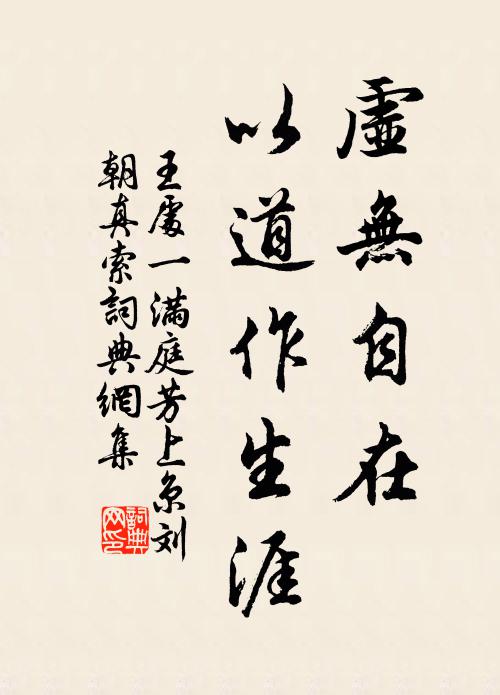 虛無自在
以道作生涯
王處一滿庭芳上京刘
朝真索詞典網集
詞典網印